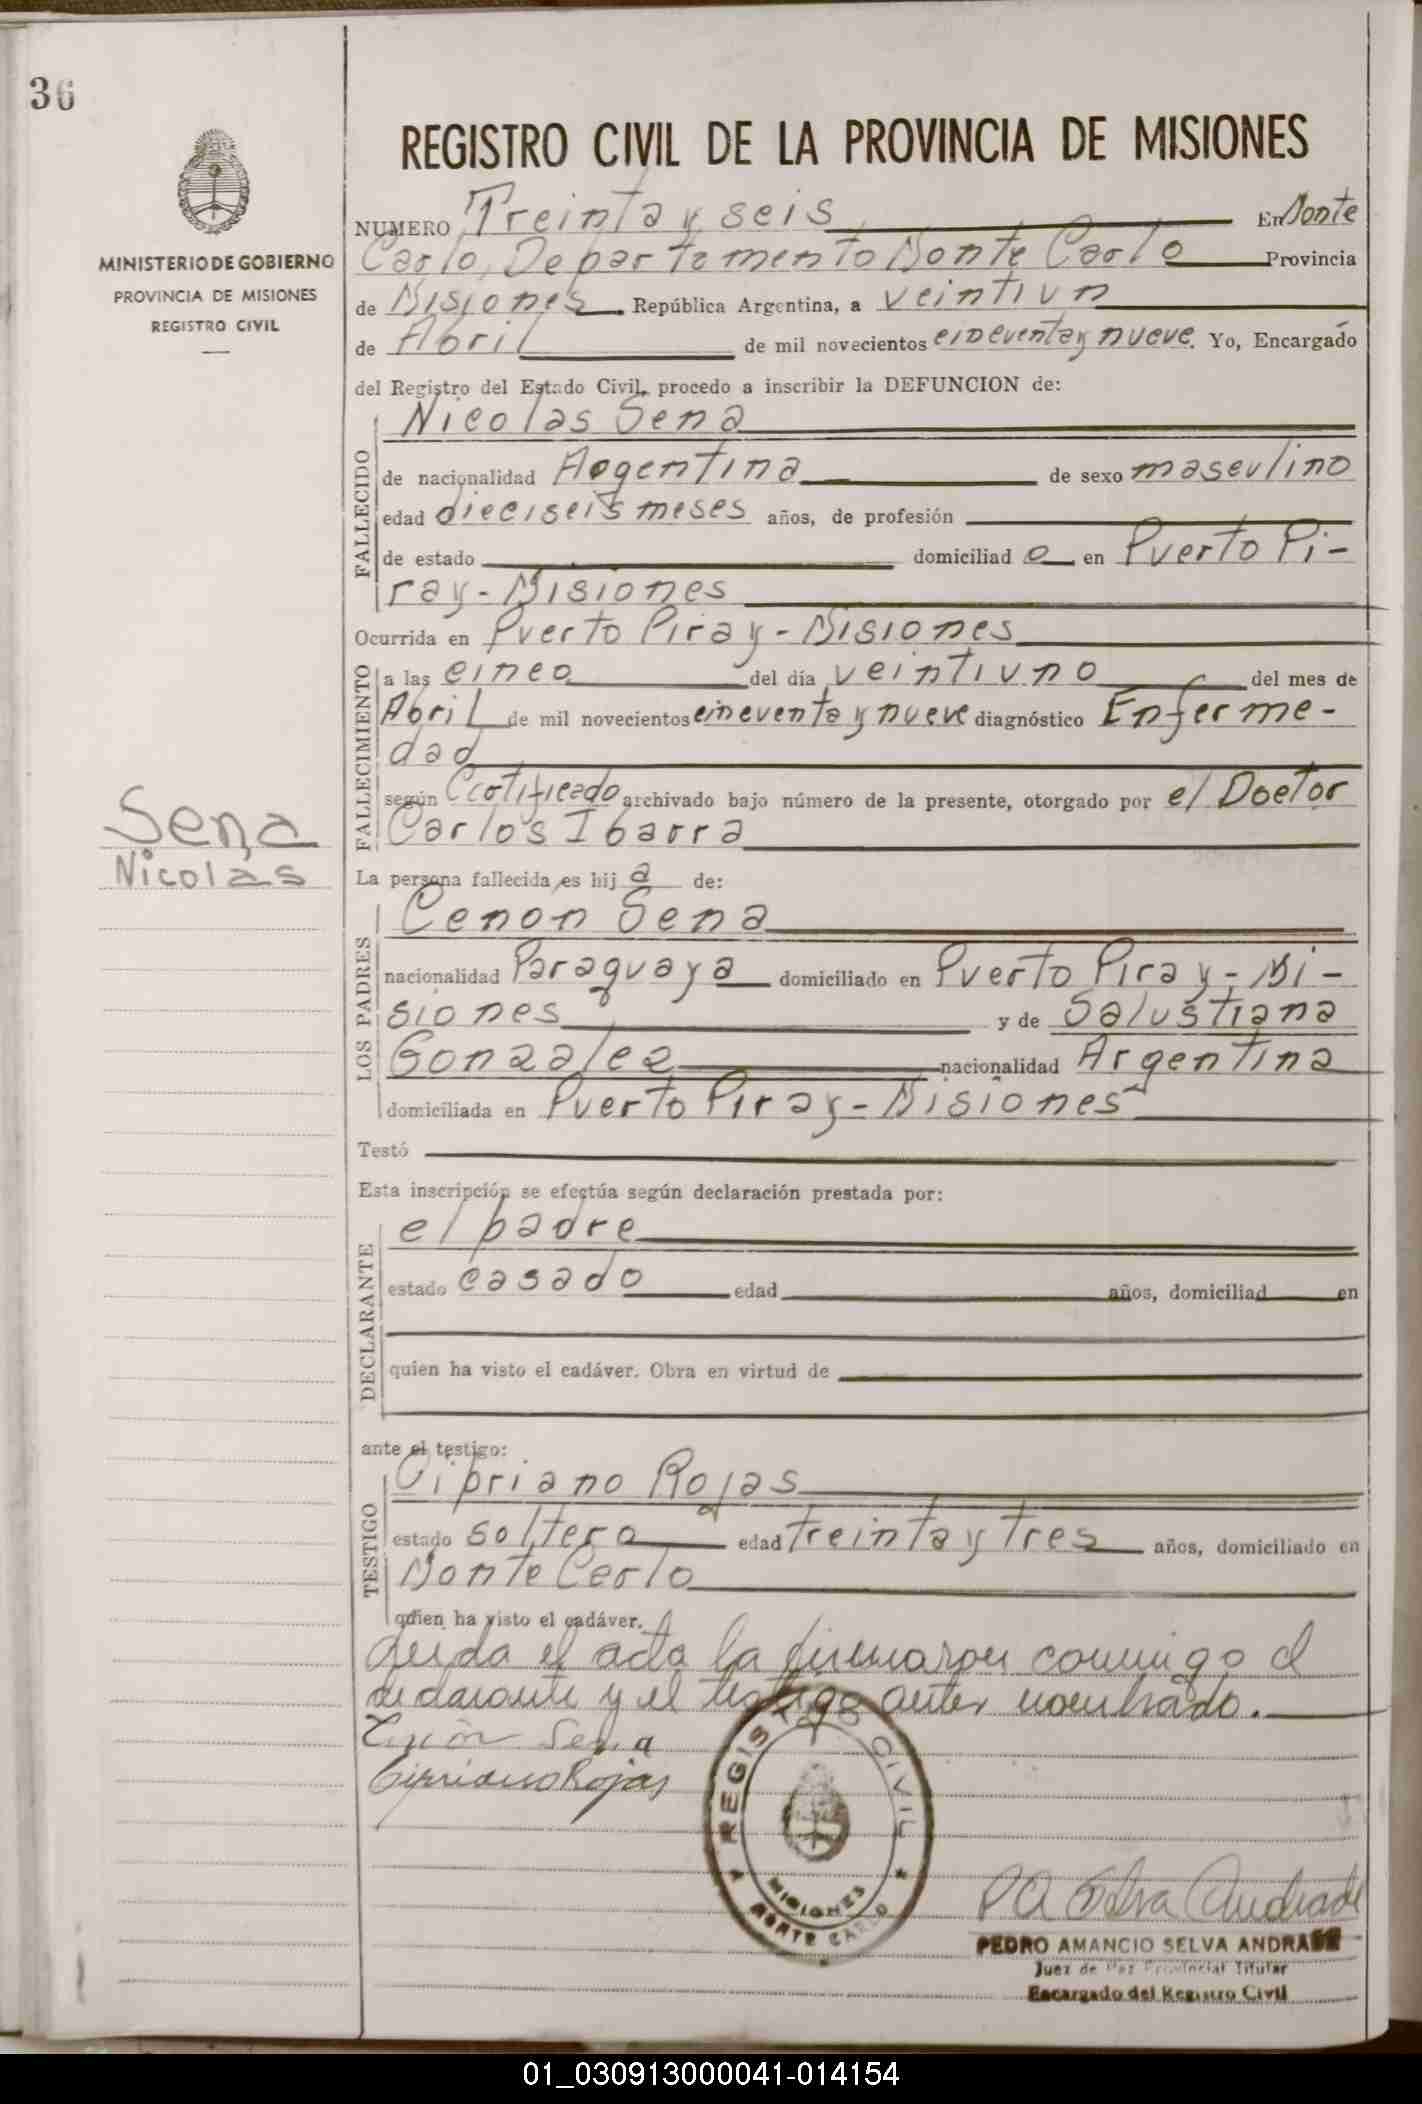 36
MINISTERIO DE GOBIERNO
PROVINCIA DE MISIONES
REGISTRO CIVIL
Sena
Nicolas
REGISTRO CIVIL DE LA PROVINCIA DE MISIONES
NUMERO Treinta y seis En Monte
Carlo, Departamento Monte Carlo Provincia
de Misiones República Argentina, a veintiun
de Abril de mil novecientos cincuenta y nueve. Yo, Encargado
del Registro del Estado Civil, procedo a inscribir la DEFUNCION de:
Nicolas Sena
FALLECIDO
de nacionalidad Argentina de sexo masculino
edad dieciseis meses años, de profesión
de estado domiciliad o en Puerto Pi-
ray - Misiones
Ocurrida en Puerto Piray - Misiones
FALLECIMIENTO
a las cinco del día veintiuno del mes de
Abril de mil novecientos cincuenta y nueve diagnóstico Enferme-
dad
según Certificado archivado bajo número de la presente, otorgado por el Doctor
Carlos Ibarra
La persona fallecida, es hij a de:
LOS PADRES
Cenon Sena
nacionalidad Paraguaya domiciliado en Puerto Piray - Mi-
siones y de Salustiana
Gonzalez nacionalidad Argentina
domiciliada en Puerto Piray - Misiones
Testó
Esta inscripción se efectúa según declaración prestada por:
DECLARANTE
el padre
estado casado edad años, domiciliad en
quien ha visto el cadáver. Obra en virtud de
ante el testigo:
TESTIGO
Cipriano Rojas
estado soltero edad treinta y tres años, domiciliado en
Monte Carlo
quien ha visto el cadáver.
Leida el acta la firmaron conmigo el
declarante y el testigo antes nombrado.
Cenón Sena
Cipriano Rojas
REGISTRO CIVIL
MISIONES
MONTE CARLO
P A Selva Andrade
PEDRO AMANCIO SELVA ANDRADE
Juez de Paz Provincial Titular
Encargado del Registro Civil
01_030913000041-014154